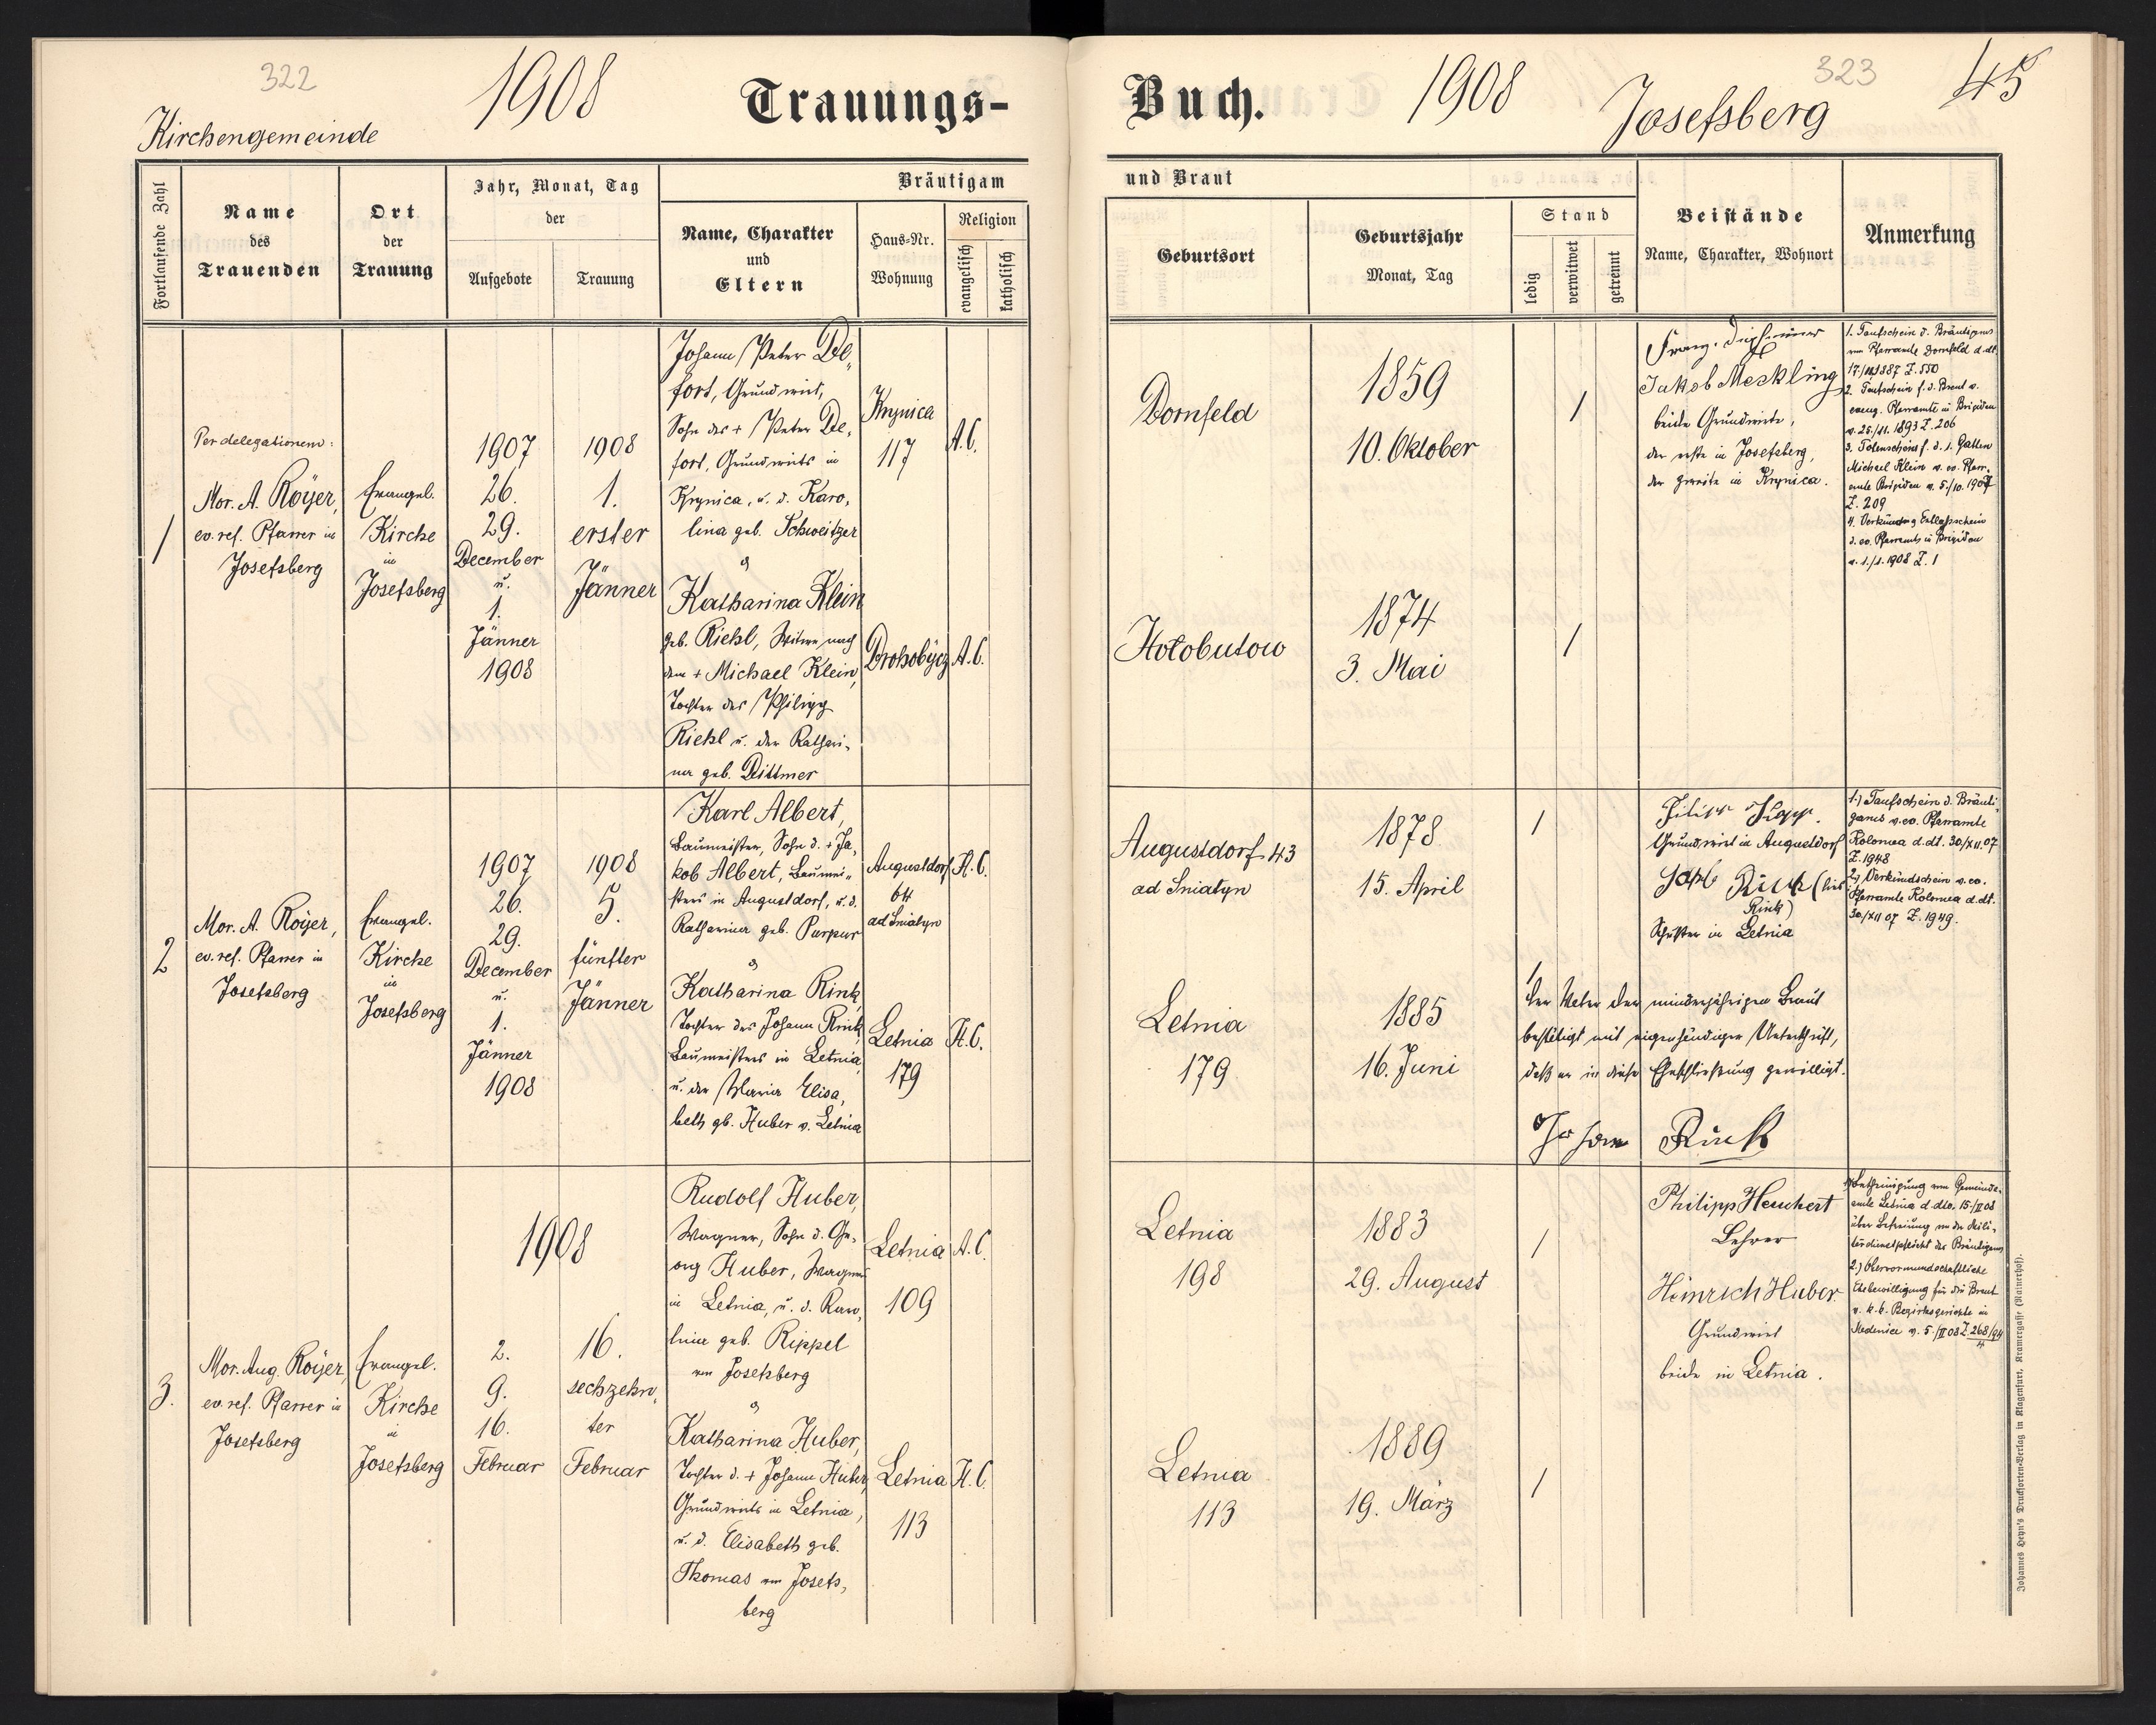 322
1908
Trauungs-
Kirchengemeinde
Fortlaufende Zahl
Name
des
Trauenden
Ort
der
Trauung
Jahr, Monat, Tag
der
Aufgebote
Trauung
Bräutigam
Name, Charakter
und
Eltern
Haus-Nr.
Wohnung
Religion
evangelisch
katholisch
1
Per delegationem:
Mor. A. Royer,
ev. ref. Pfarrer in
Josefsberg
Evangel.
Kirche
in
Josefsberg
1907
26.
29.
December
u.
1.
Jänner
1908
1908
1.
erster
Jänner
Johann Peter De,
fort, Grundwirt,
Sohn des + Peter De,
fort, Grundwirts in
Krynica, u. d. Karo,
lina geb. Schweitzer
&
Katharina Klein
geb. Riehl, Witwe nach
dem + Michael Klein,
Tochter des Philipp
Riehl u. der Kathari-
na geb. Dittmer
Krynica
117
A.C.
Drohobycz
A.C.
2
Mor. A. Royer,
ev. ref. Pfarrer in
Josefsberg
Evangel.
Kirche
in
Josefsberg
1907
26.
29.
December
u.
1.
Jänner
1908
1908
5.
fünfter
Jänner
Karl Albert,
Baumeister, Sohn d. + Ja,
kob Albert, Baumei-
sters in Augustdorf, u. d.
Katharina geb. Purpur
&
Katharina Rink,
Tochter des Johann Rink,
Baumeisters in Letnia,
u. der Maria Elisa,
beth gb. Huber v. Letnia
Augustdorf
64
ad Sniatyn
H.C.
Letnia
179
H.C.
3.
Mor. Aug. Royer,
ev. ref. Pfarrer in
Josefsberg
Evangel.
Kirche
in
Josefsberg
1908
2.
9.
16.
Februar
16.
sechzehn,
ter
Februar
Rudolf Huber,
Wagner, Sohn d. Ge-
org Huber, Wagners
in Letnia, u. d. Karo,
lina geb. Rippel
von Josefsberg
&
Katharina Huber,
Tochter d. + Johann Huber,
Grundwirts in Letnia,
u. d. Elisabeth geb.
Thomas von Josefs,
berg
Letnia
109
A.C.
Letnia
113
H.C.
Buch.
1908
Josefsberg
323
45
und Braut
Geburtsort
Geburtsjahr
Monat, Tag
Stand
ledig
verwitwet
getrennt
Beistände
Name, Charakter, Wohnort
Anmerkung
Dornfeld
1859
10. Oktober
/
Jakob Meckling
beide Grundwirte,
der erste in Josefsberg,
der zweite in Krynica.
1. Taufschein d. Bräutigams
vom Pfarramte Dornfeld d. dt.
Z. 550
2. Taufschein f. d. Braut v.
evang. Pfarramte in Brigidau
v. 25./11. 1893 Z. 206
3. Totenschein f. d. 1. Gatten
Michael Klein v. ev. Pfarr-
amte Brigidau v. 5./10. 1907
Z. 209
4. Verkündg. Entlaßschein
d. ev. Pfarramts in Brigidau
v. 1./1. 1908 Z. 1
Hołobutow
1874
3. Mai
/
Augustdorf 43
ad Sniatyn
1878
15. April
/
Grundwirt in Augustdorf
Rink)
Schuster in Letnia
1.) Taufschein d. Bräuti-
gams v. ev. Pfarramte
Kolomea d. dt. 30/XII. 07
Z. 1948
2.) Verkündschein v. ev.
Pfarramte Kolomea d. dt.
30./XII 07 Z. 1949.
Letnia
179
1885
16. Juni
/
Der Vater der minderjährigen Braut
bestätigt mit eigenhändiger Unterschrift,
daß er in diese Eheschließung gewilligt.
Johann Rink
Letnia
198
1883
29. August
/
Philipp Heuchert
Lehrer
Heinrich Huber
Grundwirt
beide in Letnia.
1.) Bescheinigung vom Gemeinde-
amte Letnia d. dto. 15./II 08
über Befreiung von der Mili-
tärdienstpflicht des Bräutigams
2.) Obervormundschaftliche
Ehebewilligung für die Braut
v. k. k. Bezirksgerichte in
Medenice v. 5./II 08 Z. 268/94
4
Letnia
113
1889
19. März
/
Johannes Heyn's Drucksorten-Verlag in Klagenfurt, Kramergasse (Mainerhof).